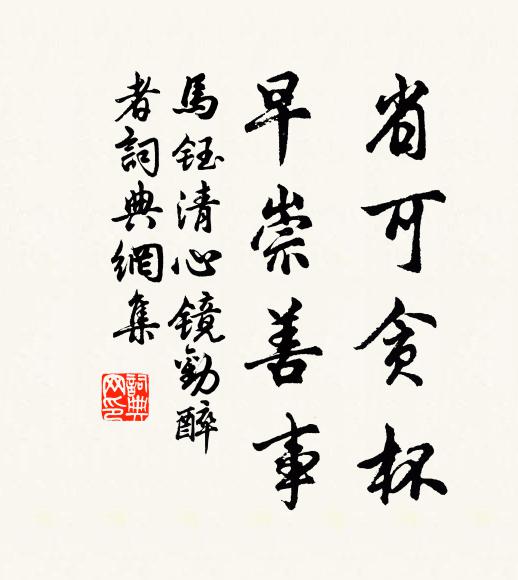 省可貪杯
早崇善事
馬鈺清心鏡勸醉
者詞典網集
詞典
网印